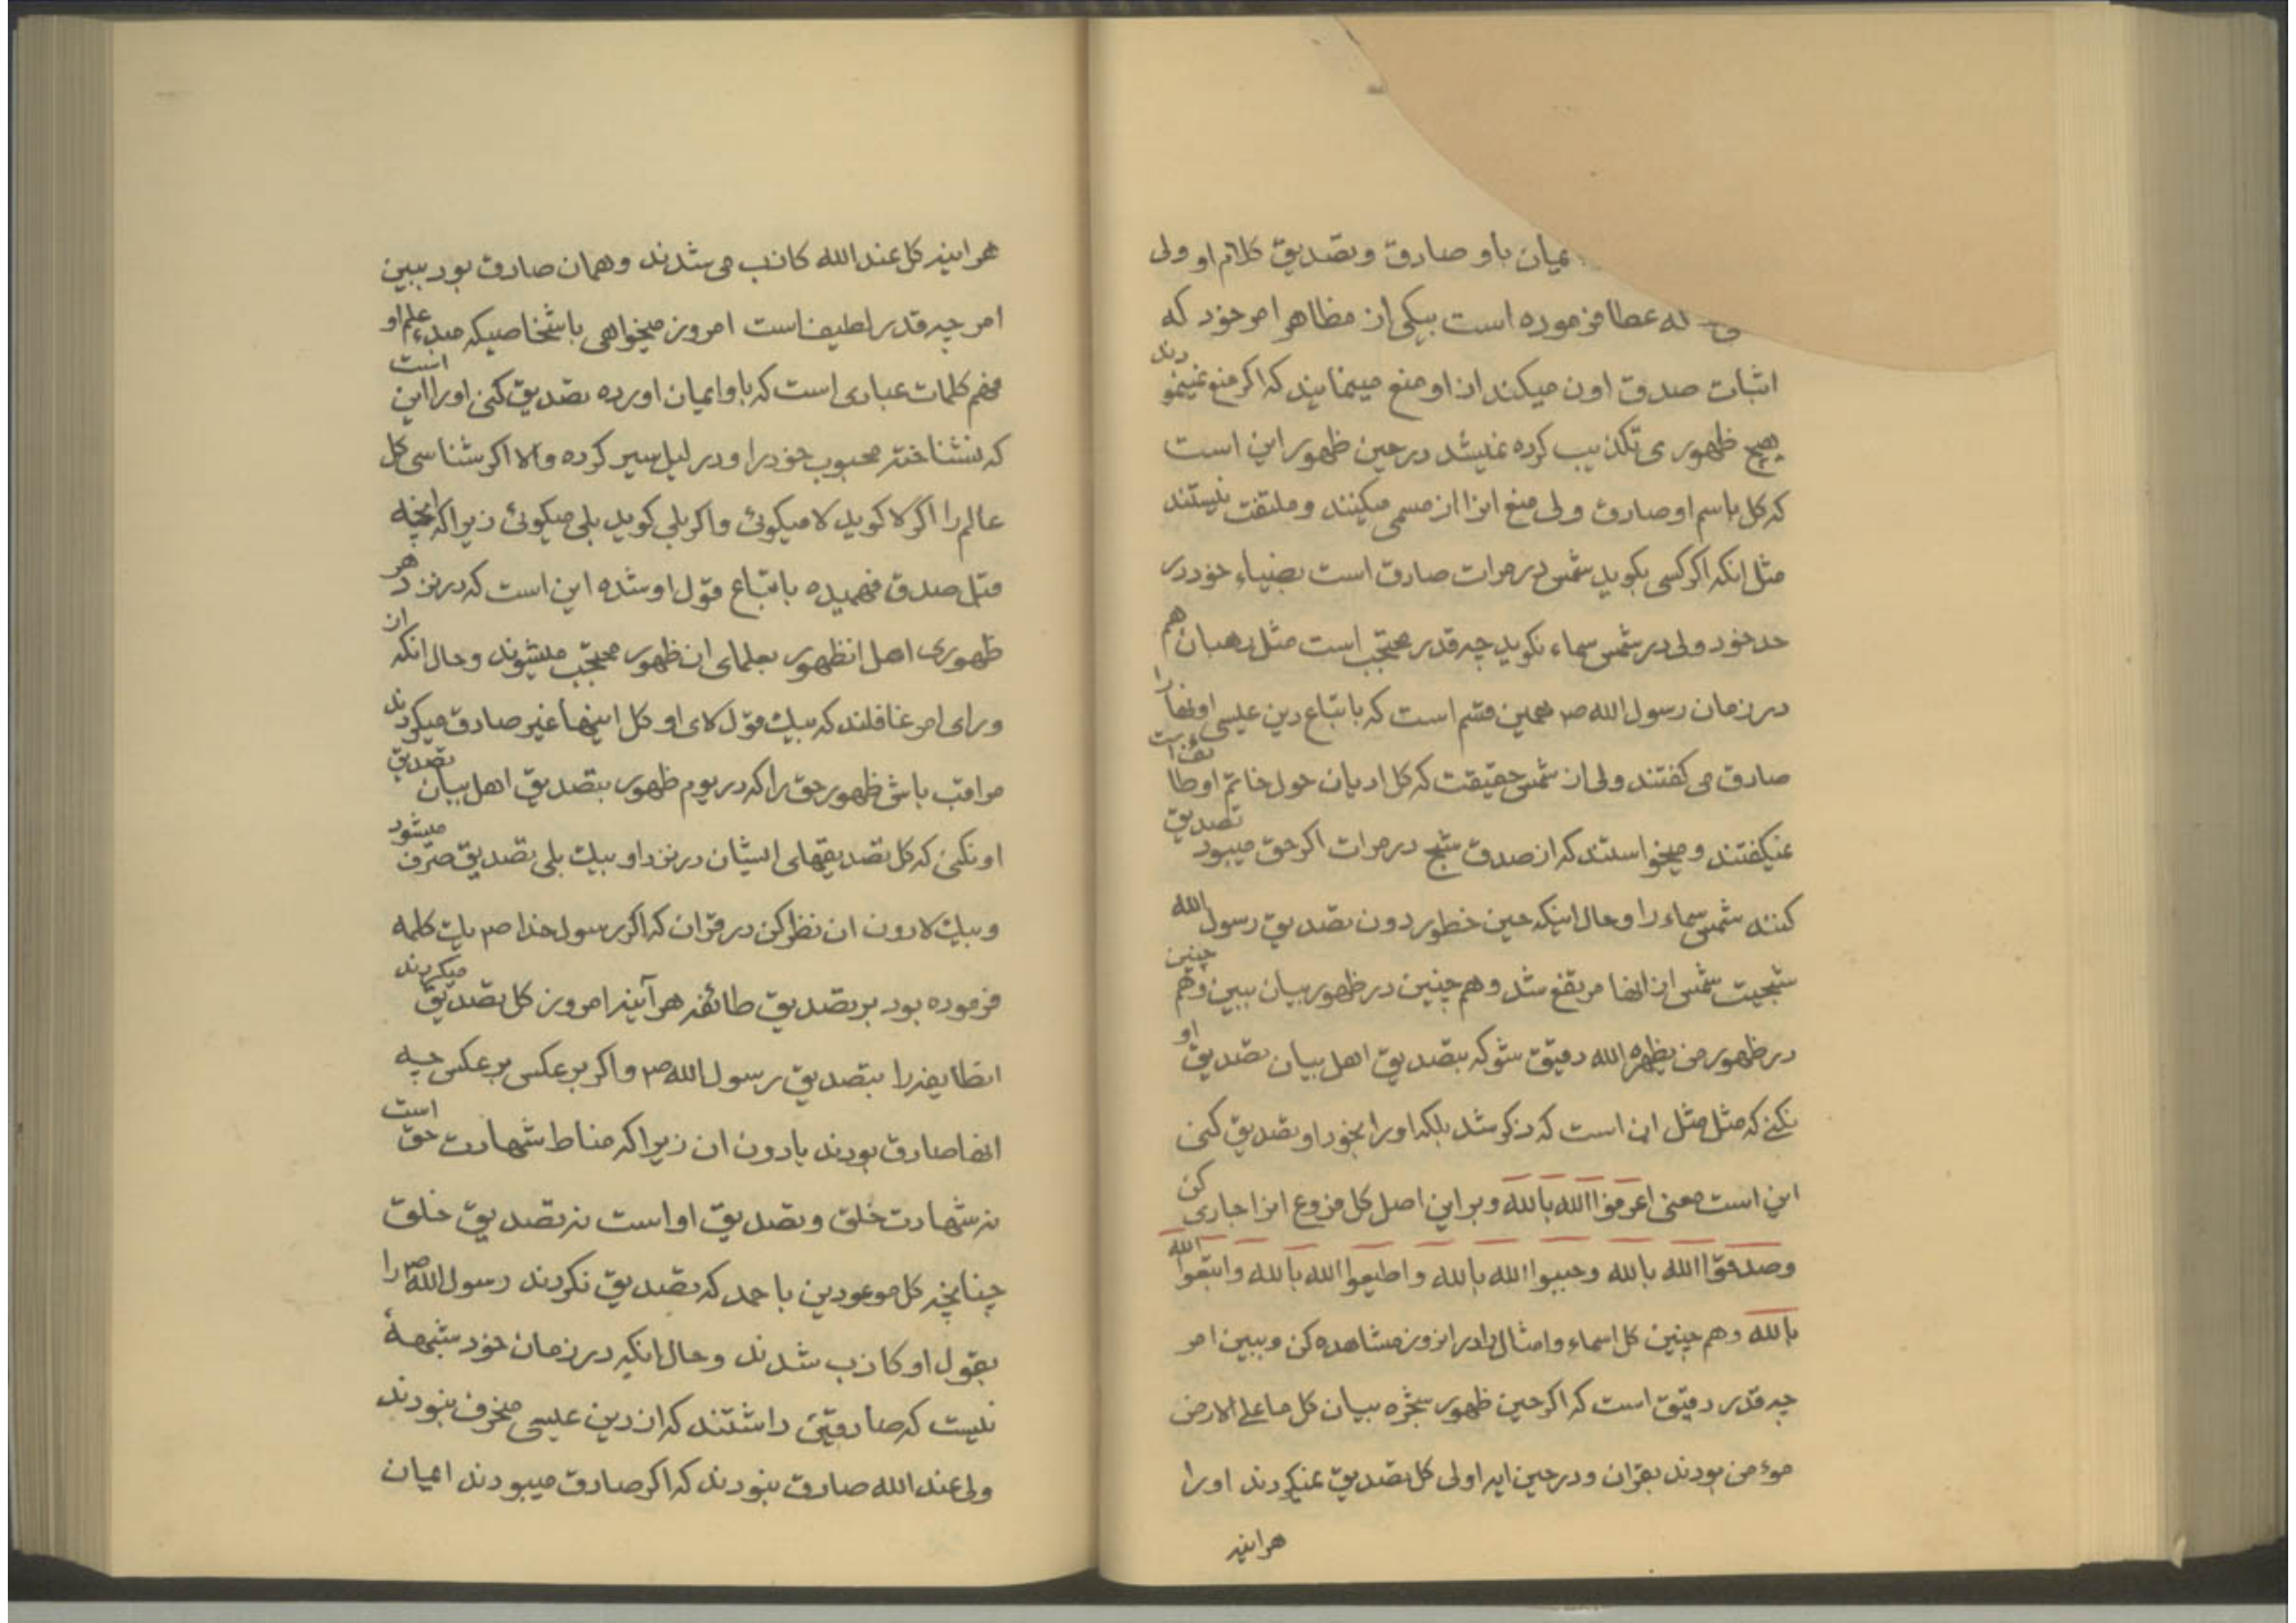 یمان باو صادق وتصدیق کلام او ولی
له عطا فرموده است بیکی از مظاهر امر خود که
اثبات صدق اون میکند از او منع مینمایند که اکر منع نمینمودند
بهیج ظهوری تکذیب کرده نمیشد در حین ظهور این است
که کل باسم او صادق ولی منع انرا از مسمی میکنند و ملتفت نیستند
مثل انکه اکر کسی بکوید شمس در مرات صادق است بضیاء خود در
حد خود ولی در شمس سماء نکوید چه قدر محتجب است مثل رهبان هم
در زمان رسول الله ص همین قسم است که باتباع دین عیسی اونها را
صادق می کفتند ولی از شمس حقیقت که کل ادیان حول خاتم او طا
نمیکفتند و میخواستند که از صدق شبح در مرات اکر حق میبود تصدیق
کنند شمس سماء را وحال اینکه حین خطور دون تصدیق رسول الله
شبحیت شمس از انها مرتفع شد وهم چنین در ظهور بیان ببین وهم چنین
در ظهور من یظهره الله دقیق شو که بتصدیق اهل بیان تصدیق او
نکنی که مثل مثل این است که ذکر شد بلکه اورا بخود او تصدیق کنی
این است معنی اعرفوا الله بالله وبر این اصل کل فروع انرا جاری کن
وصدقوا الله بالله وحببوا الله بالله واطیعوا الله بالله واتبعوا الله
بالله وهم چنین کل اسماء وامثال را در انروز مشاهده کن وببین امر
چه قدر دقیق است که اکر حین ظهور شجره بیان کل ما علی الارض
موءمن بودند بقران ودر حین ایه اولی کل تصدیق نمیکردند اورا
هراینه
هراینه کل عند الله کاذب می شدند وهمان صادق بود ببین
امر چه قدر لطیف است امروز میخواهی باشخاصیکه مبدء علم او
فهم کلمات عبادی است که باو ایمان اورده تصدیق کنی اورا این است
که نشناخته محبوب خود را ودر لیل سیر کرده والا اکر شناسی کل
عالم را اکر لا کوید لا میکوئی واکر بلی کوید بلی میکوئی زیرا که انچه
قبل صدق فهمیده باتباع قول او شده این است که در نزد هر
ظهوری اهل انظهور بعلمای ان ظهور محتجب میشوند وحال انکه از
ورای امر غافلند که بیک قول لای او کل اینها غیر صادق میکردند
مراقب باش ظهور حق را که در یوم ظهور بتصدیق اهل بیان تصدیق
او نکنی که کل تصدیقهای ایشان در نزد او بیک بلی تصدیق صرف میشود
وبیک لا دون ان نظر کن در قران که اکر رسول خدا ص یک کلمه
فرموده بود بر تصدیق طائفه هرآینه امروز کل تصدیق میکردند
انطایفه را بتصدیق رسول الله ص واکر بر عکس بر عکس چه
انها صادق بودند یا دون ان زیرا که مناط شهادت حق است
نه شهادت خلق وتصدیق او است نه تصدیق خلق
چنانچه کل موعودین باحمد که تصدیق نکردند رسول الله ص را
بقول او کاذب شدند وحال انکه در زمان خود شبههٔ
نیست که صادقینی داشتند که از دین عیسی منحرف نبودند
ولی عند الله صادق نبودند که اکر صادق میبودند ایمان